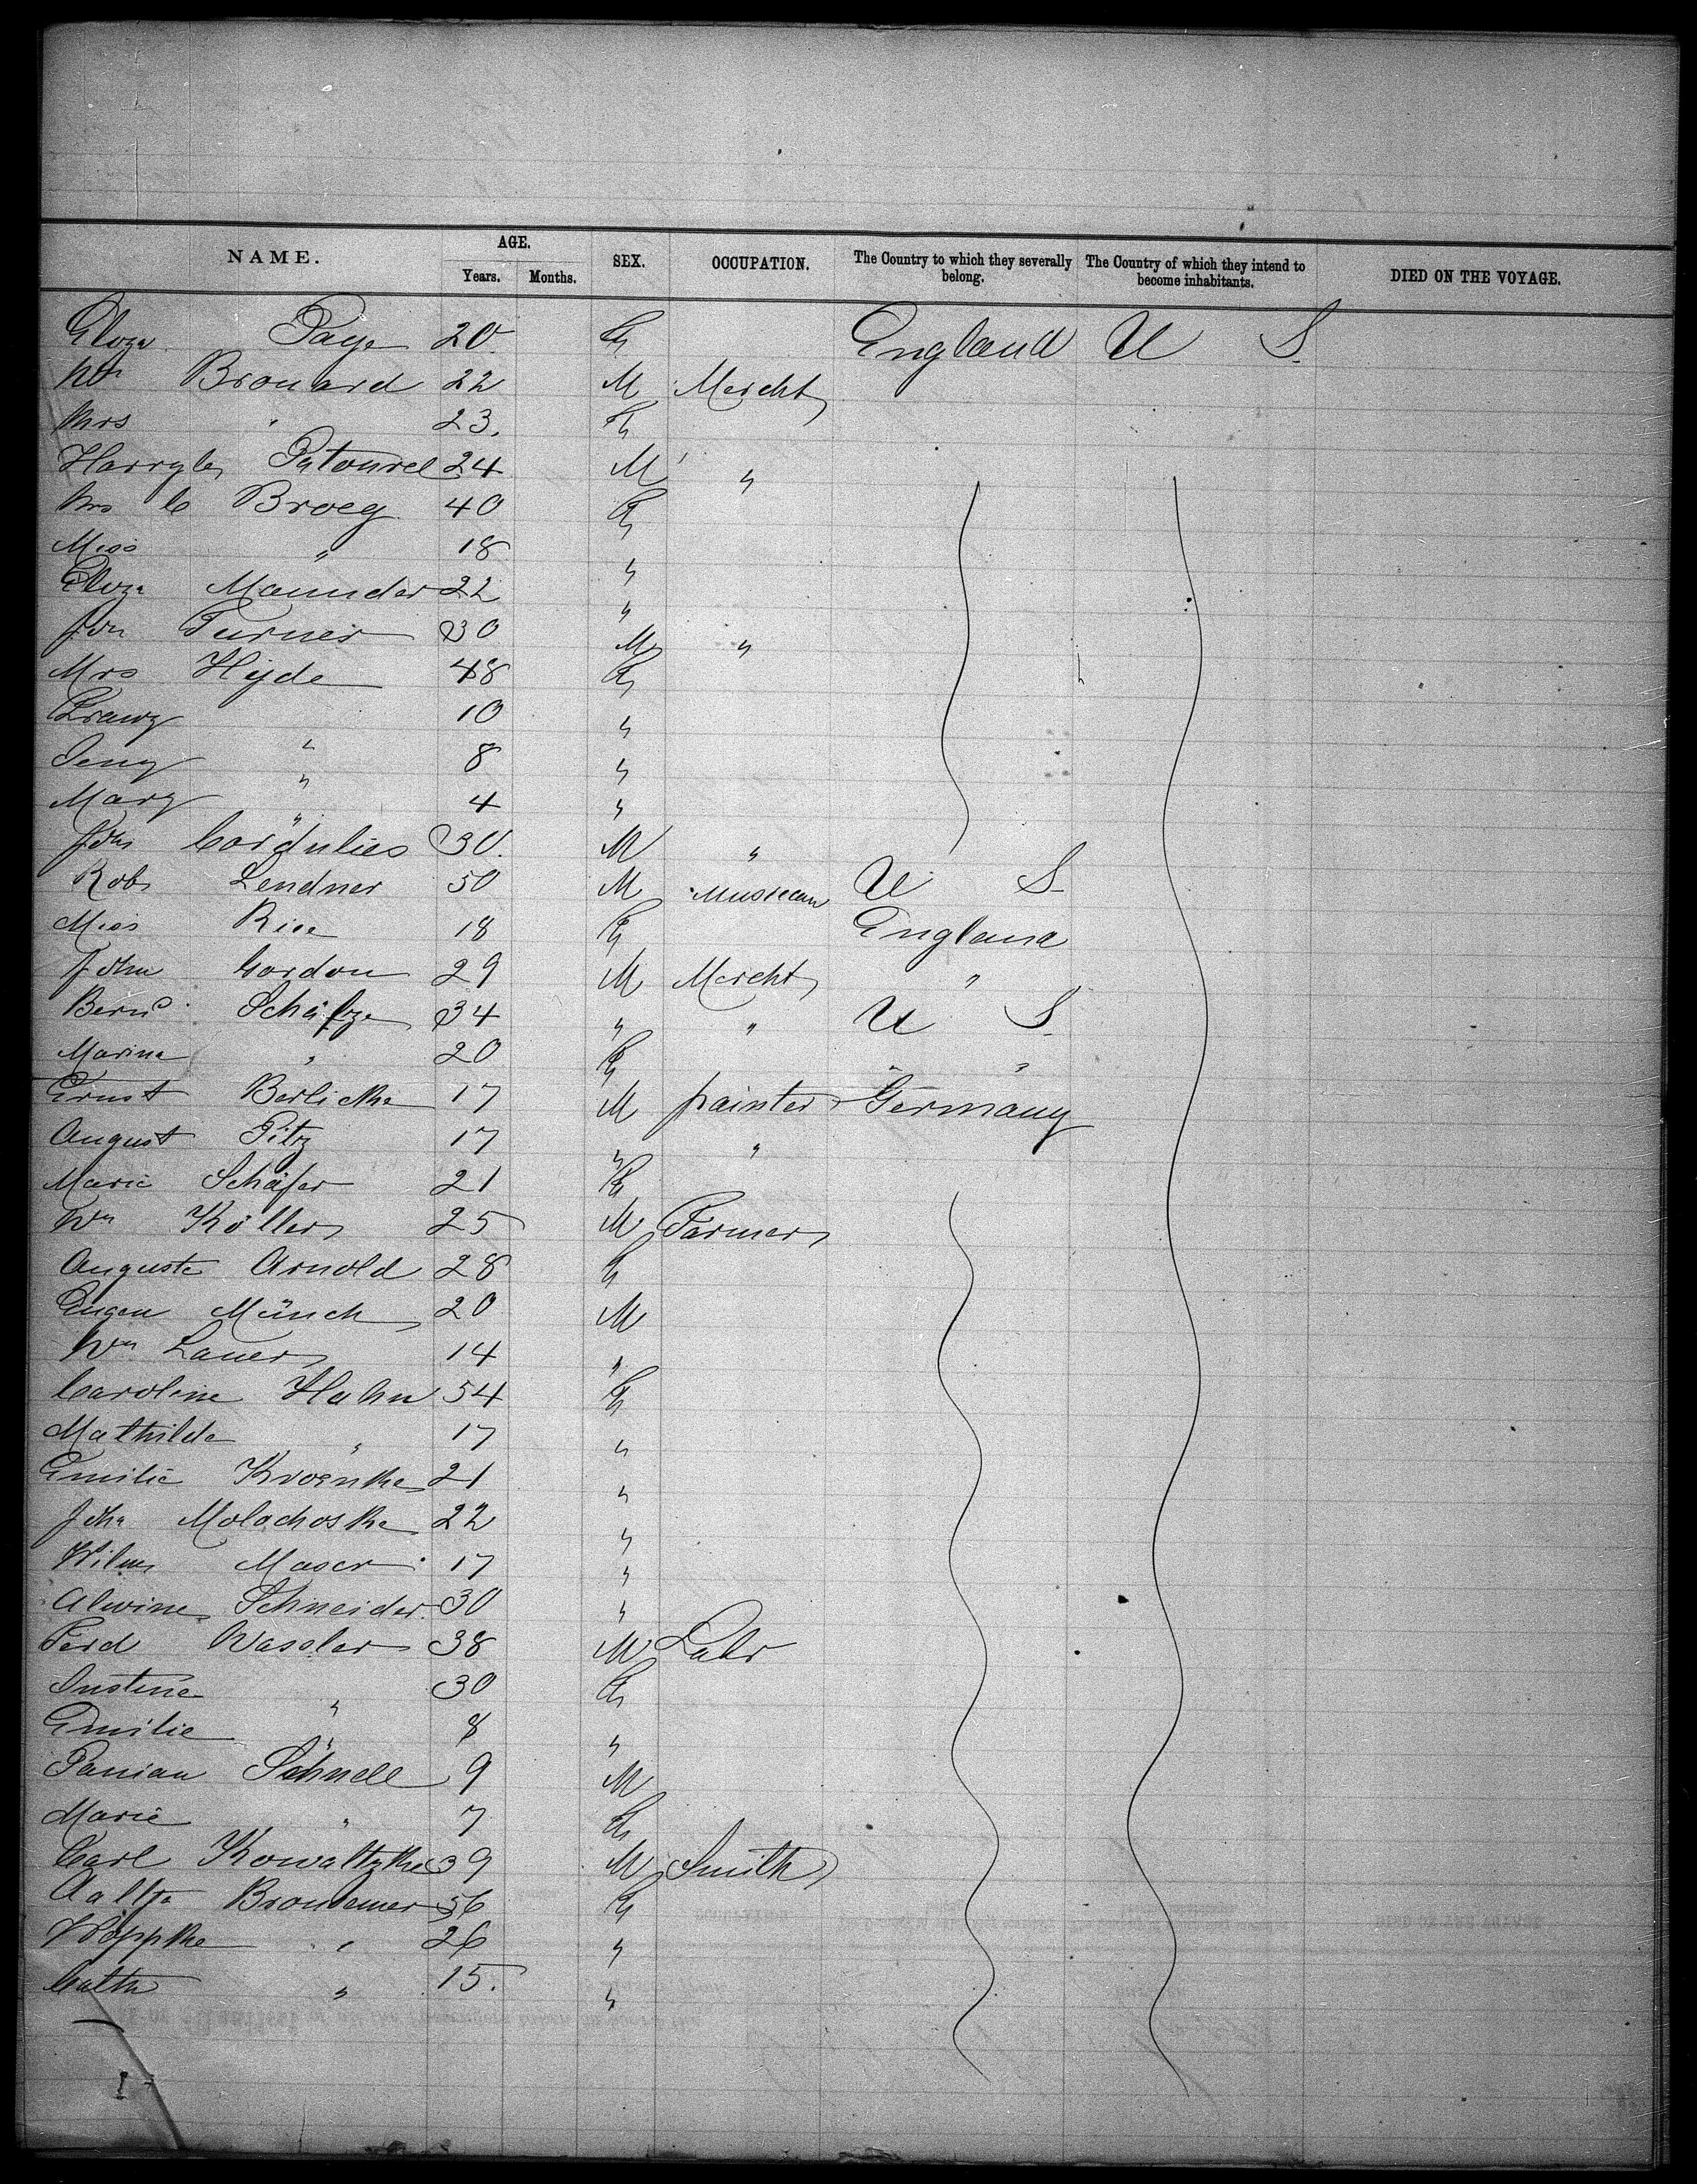 NAME. AGE. SEX. OCCUPATION. The Country to which they severally belong. The Country of which they intend to become inhabitants. DIED ON THE VOYAGE.
Years. Months.
Eliza Page 20 F England U S
Wm Brouard 22 M Mercht
Mrs " 23. F
Harry le Patourel 24 M "
Mrs C Broeg 40 F
Miss " 18 "
Eliza Maunder 22 "
Jon Turner 30 M "
Mrs Hyde 48 F
10 "
Jeny " 8 "
Mary " 4 "
Jon 30. M "
Rob Lendner 50 M Musician U S
Miss Rice 18 F England
John Gordon 29 M Mercht "
Bernd Schäfze 34 " " U S
Marina " 20 F " "
Ernst Berlicke 17 M painter Germany
August Pitz 17 " "
Marie Schäfer 21 F
Wm Köller 25 M Farmer
Auguste Arnold 28 F
Eugen Münch 20 M
Wm Lauer 14 "
Caroline Hahn 54 F
Mathilde " 17 "
Emilie Kroenke 21 "
Joha Molachoske 22 "
Wilm Maser 17 "
Alwine Schneider 30 "
Ferd Wassler 38 M Labr
Justine " 30 F
Emilie " 8 "
Schnell 9 M
Marie " 7 F
Carl Kowaltzke 39 M Smith
56 F
" 26 "
Cath " 15. "